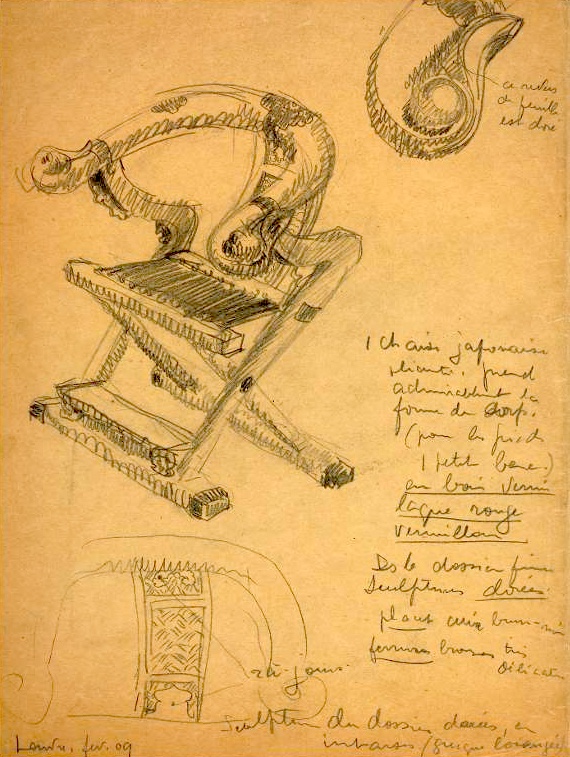 ce revers
de feuille
est doré
1 chaise japonaise
pliante. prend
admirablement la
forme du corps.
(pour les pieds
1 petit banc)
en bois verni
laque rouge
vermillon
Ds le dossier fines
sculptures dorées.
plant cuir brun
ferrures bronze très
délicates
à jours
Sculpture du dossier dorées, en
Louvre. fev. 09